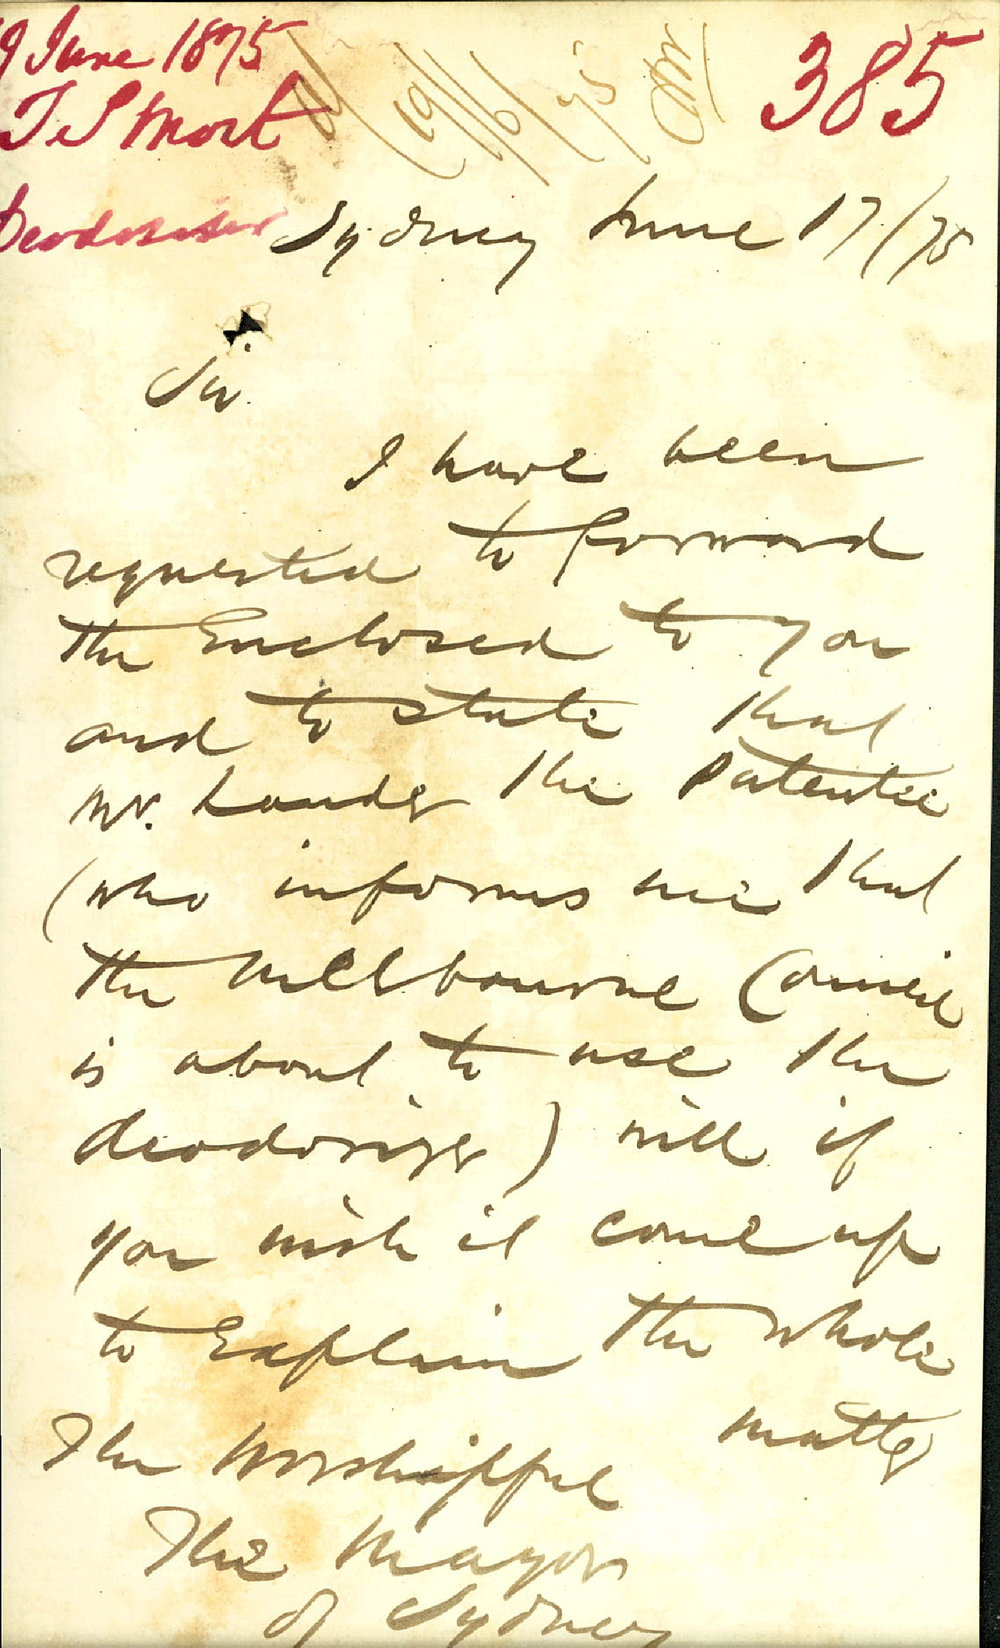 9 June 1875
T S Mort
Deodoriser
19/6/75
385
Sydney June 17/75
Sir.
I have been
requested to forward
the Enclosed to you
and to state that
Mr. Lauder the Patentee
(who informs me that
the Mellbourne Council
is about to use the
deodorizer) will if
you wish it come up
to Explain the whole
matter
The Worshipful
The Mayor
of Sydney